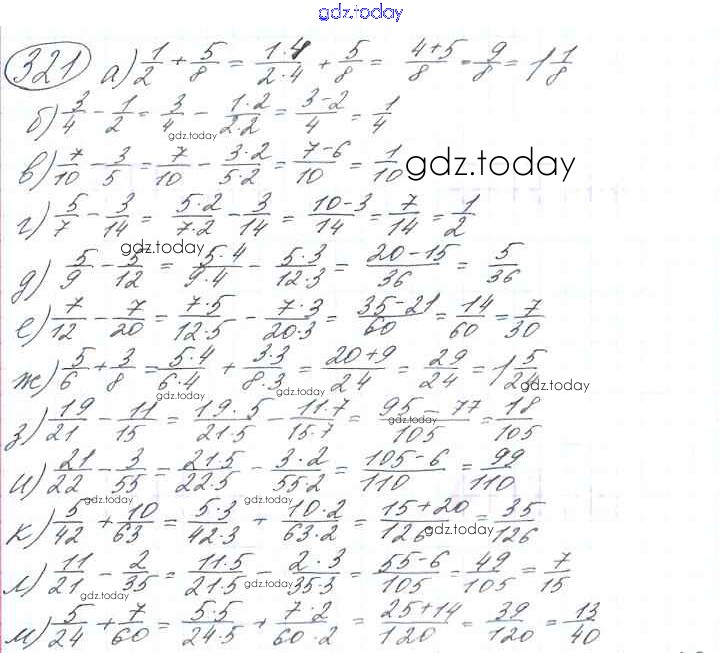 gdz.today
321 а) 1/2 + 5/8 = 1·4/2·4 + 5/8 = 4+5/8 = 9/8 = 1 1/8
б) 3/4 - 1/2 = 3/4 - 1·2/2·2 = 3-2/4 = 1/4
gdz.today
в) 7/10 - 3/5 = 7/10 - 3·2/5·2 = 7-6/10 = 1/10
gdz.today
г) 5/7 - 3/14 = 5·2/7·2 - 3/14 = 10-3/14 = 7/14 = 1/2
gdz.today
д) 5/9 - 5/12 = 5·4/9·4 - 5·3/12·3 = 20-15/36 = 5/36
е) 7/12 - 7/20 = 7·5/12·5 - 7·3/20·3 = 35-21/60 = 14/60 = 7/30
ж) 5/6 + 3/8 = 5·4/6·4 + 3·3/8·3 = 20+9/24 = 29/24 = 1 5/24
gdz.today
gdz.today
з) 19/21 - 11/15 = 19·5/21·5 - 11·7/15·7 = 95-77/105 = 18/105
и) 21/22 - 3/55 = 21·5/22·5 - 3·2/55·2 = 105-6/110 = 99/110
gdz.today
gdz.today
к) 5/42 + 10/63 = 5·3/42·3 + 10·2/63·2 = 15+20/126 = 35/126
gdz.today
л) 11/21 - 2/35 = 11·5/21·5 - 2·3/35·3 = 55-6/105 = 49/105 = 7/15
gdz.today
gdz.today
м) 5/24 + 7/60 = 5·5/24·5 + 7·2/60·2 = 25+14/120 = 39/120 = 13/40